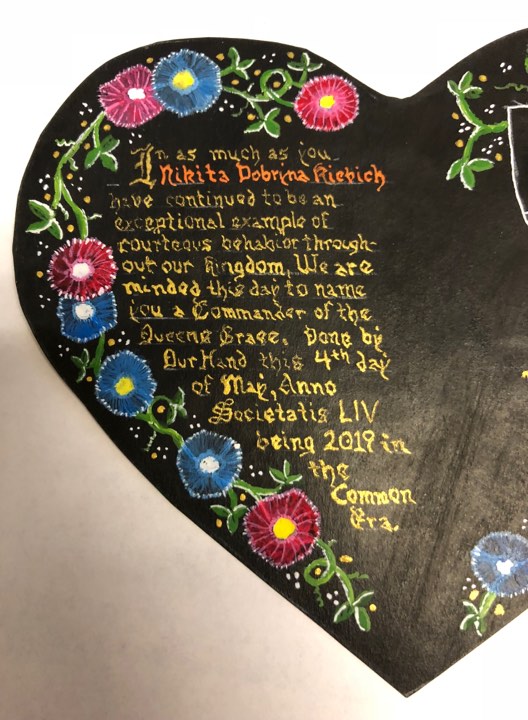 In as much as you
Nikita Dobryna Kiebich
have continued to be an
exceptional example of
courteous behabior through-
out our kingdom, We are
minded this day to name
you a Commander of the
Queens Grace. Done by
Our Hand this 4th day
of May, Anno
Societatis LIV
being 2019 in
the
Common
Era.